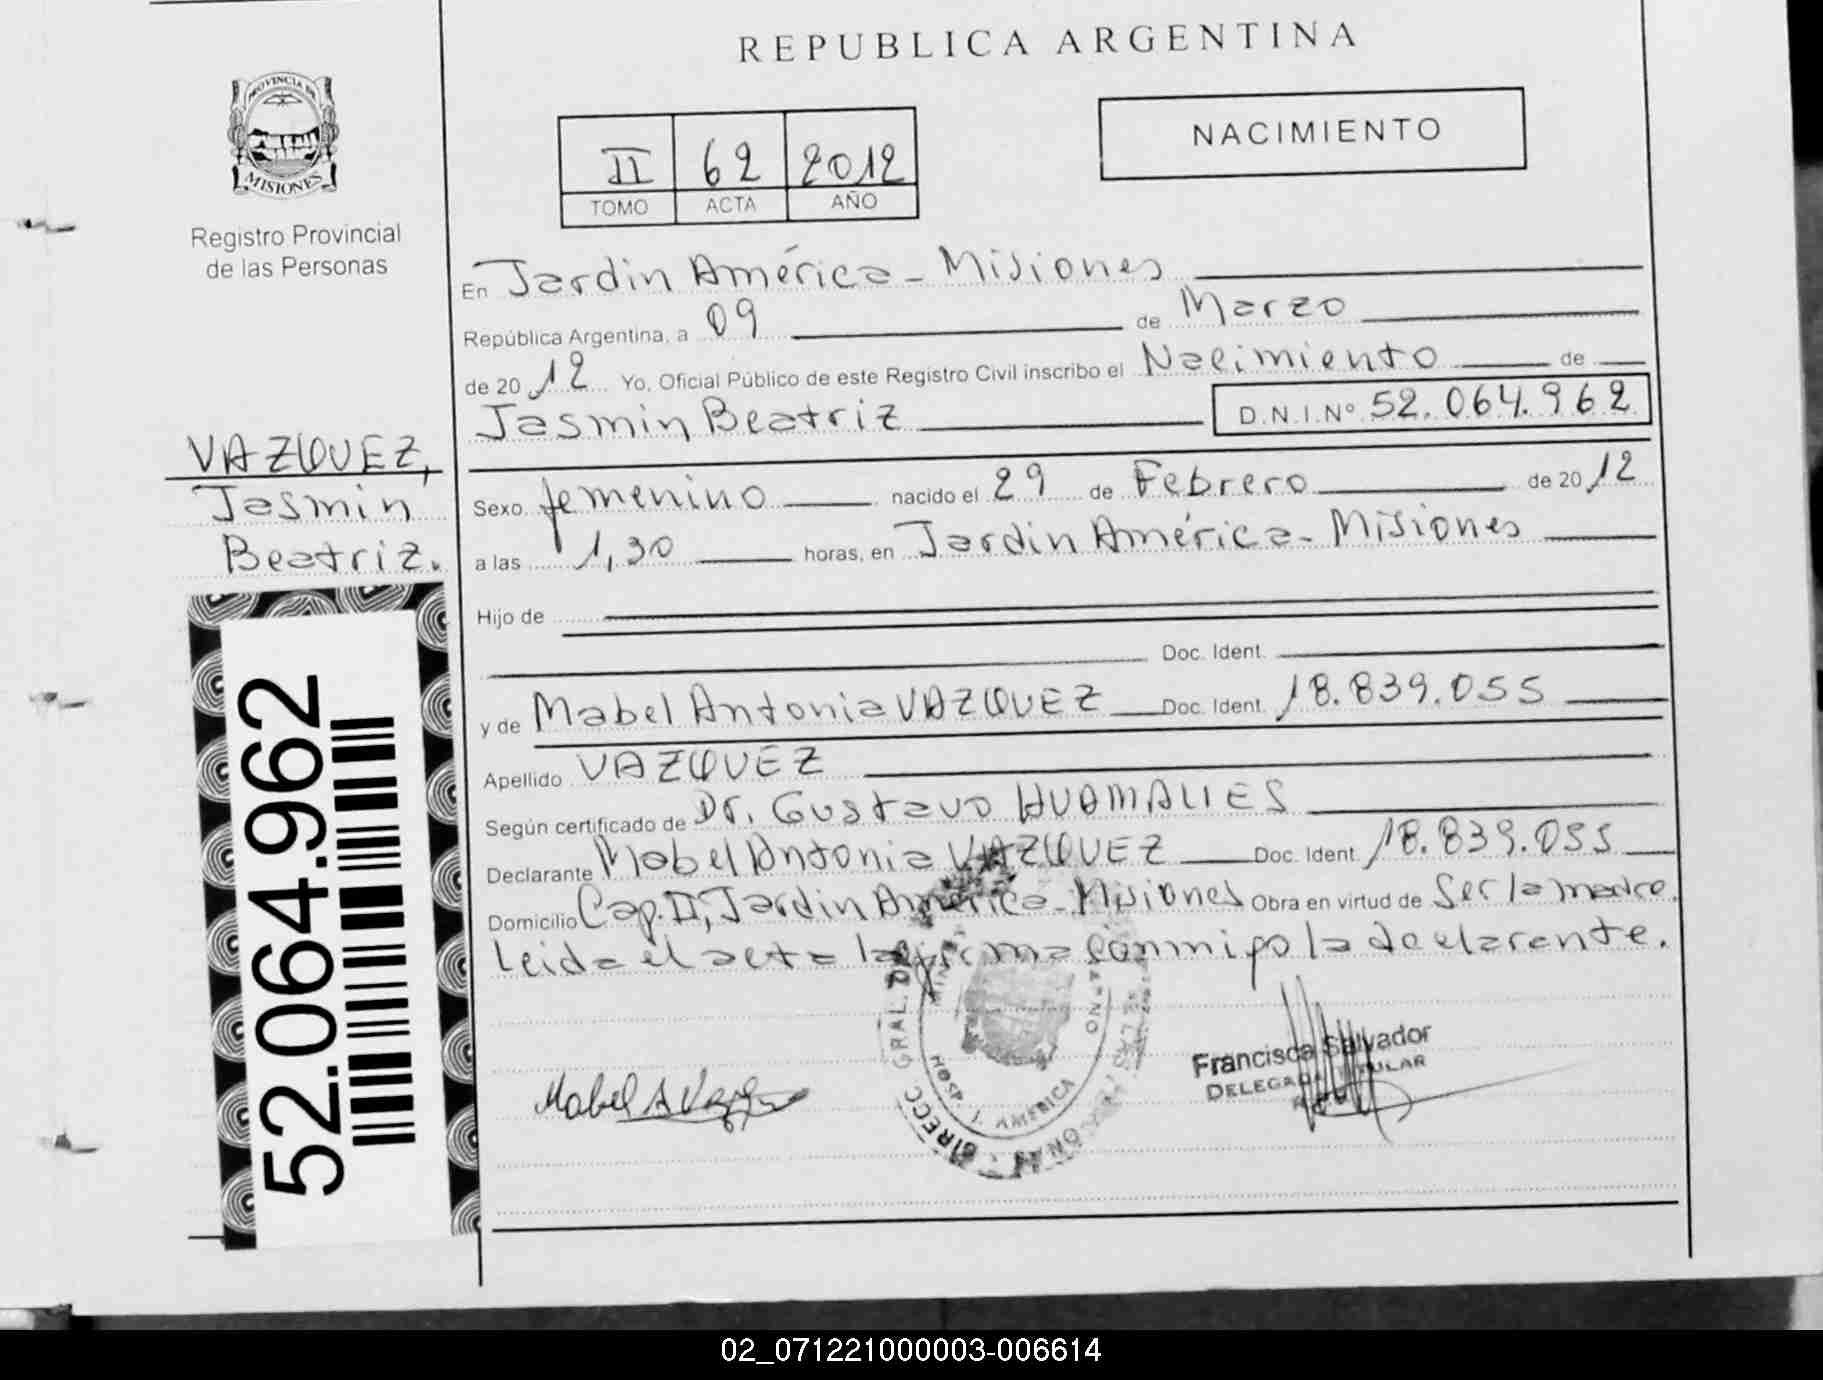 REPUBLICA ARGENTINA
PROVINCIA DE
MISIONES
Registro Provincial
de las Personas
II 62 2012
TOMO ACTA AÑO
NACIMIENTO
En Jardin América - Misiones
República Argentina, a 09 de Marzo
de 2012 Yo, Oficial Público de este Registro Civil inscribo el Nacimiento de
Jasmin Beatriz D.N.I.Nº 52.064.962
VAZQUEZ,
Jasmin
Beatriz.
52.064.962
Sexo femenino nacido el 29 de Febrero de 2012
a las 1,30 horas, en Jardin América - Misiones
Hijo de
Doc. Ident.
y de Mabel Antonia VAZQUEZ Doc. Ident. 18.839.055
Apellido VAZQUEZ
Según certificado de Dr. Gustavo HUAMALIES
Declarante Mabel Antonia VAZQUEZ Doc. Ident. 18.839.055
Domicilio Cap. II, Jardin América - Misiones Obra en virtud de Ser la madre.
Leida el acta la firma conmigo la declarente.
DIRECC GRAL. D
HOSP. J. AMERICA
Mabel A Vazquez
Francisca Salvador
DELEGADA TITULAR
02_071221000003-006614